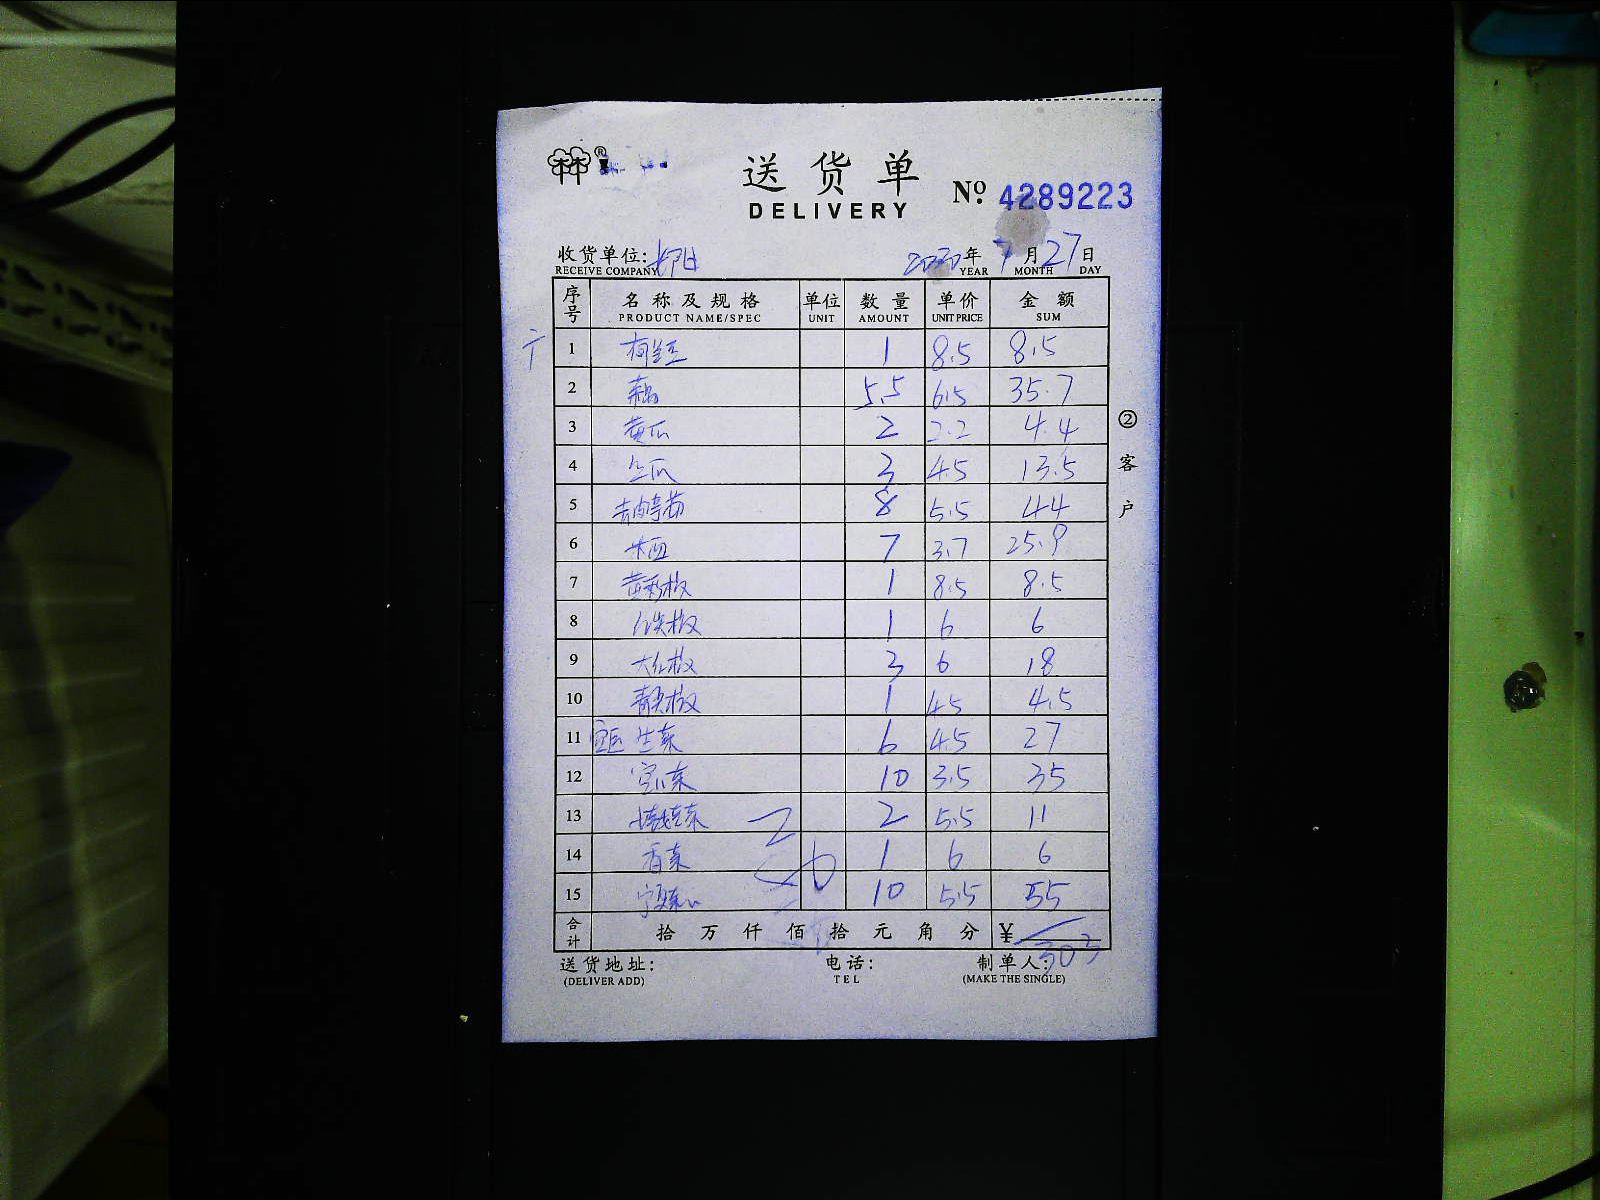 送货单
DELIVERY
No. 4289223
收货单位:
RECEIVE COMPANY
2020年7月27日
YEAR MONTH DAY
序号 名称及规格 单位 数量 单价 金额
PRODUCT NAME/SPEC UNIT AMOUNT UNIT PRICE SUM
1 1 8.5 8.5
2 藕 5.5 6.5 35.7
3 黄瓜 2 2.2 4.4
4 3 4.5 13.5
5 8 5.5 44
6 7 3.7 25.9
7 黄彩椒 1 8.5 8.5
8 1 6 6
9 大红椒 3 6 18
10 青尖椒 1 4.5 4.5
11 生菜 6 4.5 27
12 空心菜 10 3.5 35
13 2 5.5 11
14 香菜 1 6 6
15 10 5.5 55
合计 拾 万 仟 佰 拾 元 角 分 ¥ 303
送货地址: 电话: 制单人:
(DELIVER ADD) TEL (MAKE THE SINGLE)
② 客户